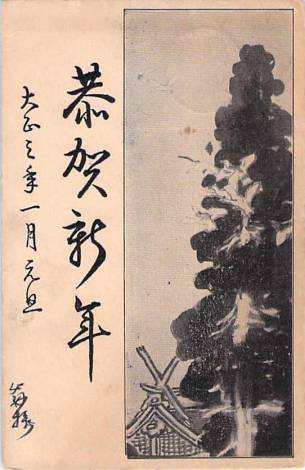 恭賀新年
大正三年一月元旦